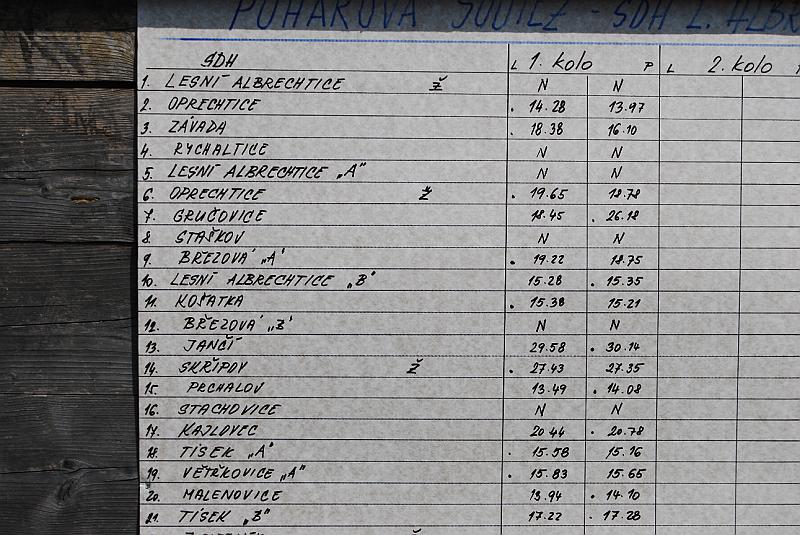 POHÁROVÁ SOUTĚŽ - SDH L. ALBR
SDH L 1. kolo P L 2. kolo
1. LESNÍ ALBRECHTICE Ž N N
2. OPRECHTICE . 14.28 13.97
3. ZÁVADA . 18.38 16.10
4. RYCHALTICE N N
5. LESNÍ ALBRECHTICE „A" N N
6. OPRECHTICE Ž . 19.65 18.78
7. GRUČOVICE 18.45 . 26.18
8. STAŠKOV N N
9. BŘEZOVÁ „A" . 19.22 18.75
10. LESNÍ ALBRECHTICE „B" 15.28 . 15.35
11. KOŠATKA . 15.38 15.21
12. BŘEZOVÁ „B" N N
13. JANČÍ 29.58 . 30.14
14. SKŘIPOV Ž . 27.43 27.35
15. PRCHALOV 13.49 . 14.08
16. STACHOVICE N N
17. KAJLOVEC 20.44 . 20.78
18. TÍSEK „A" . 15.58 15.16
19. VĚTŘKOVICE „A" . 15.83 15.65
20. MALENOVICE 13.94 . 14.10
21. TÍSEK „B" 17.22 . 17.28